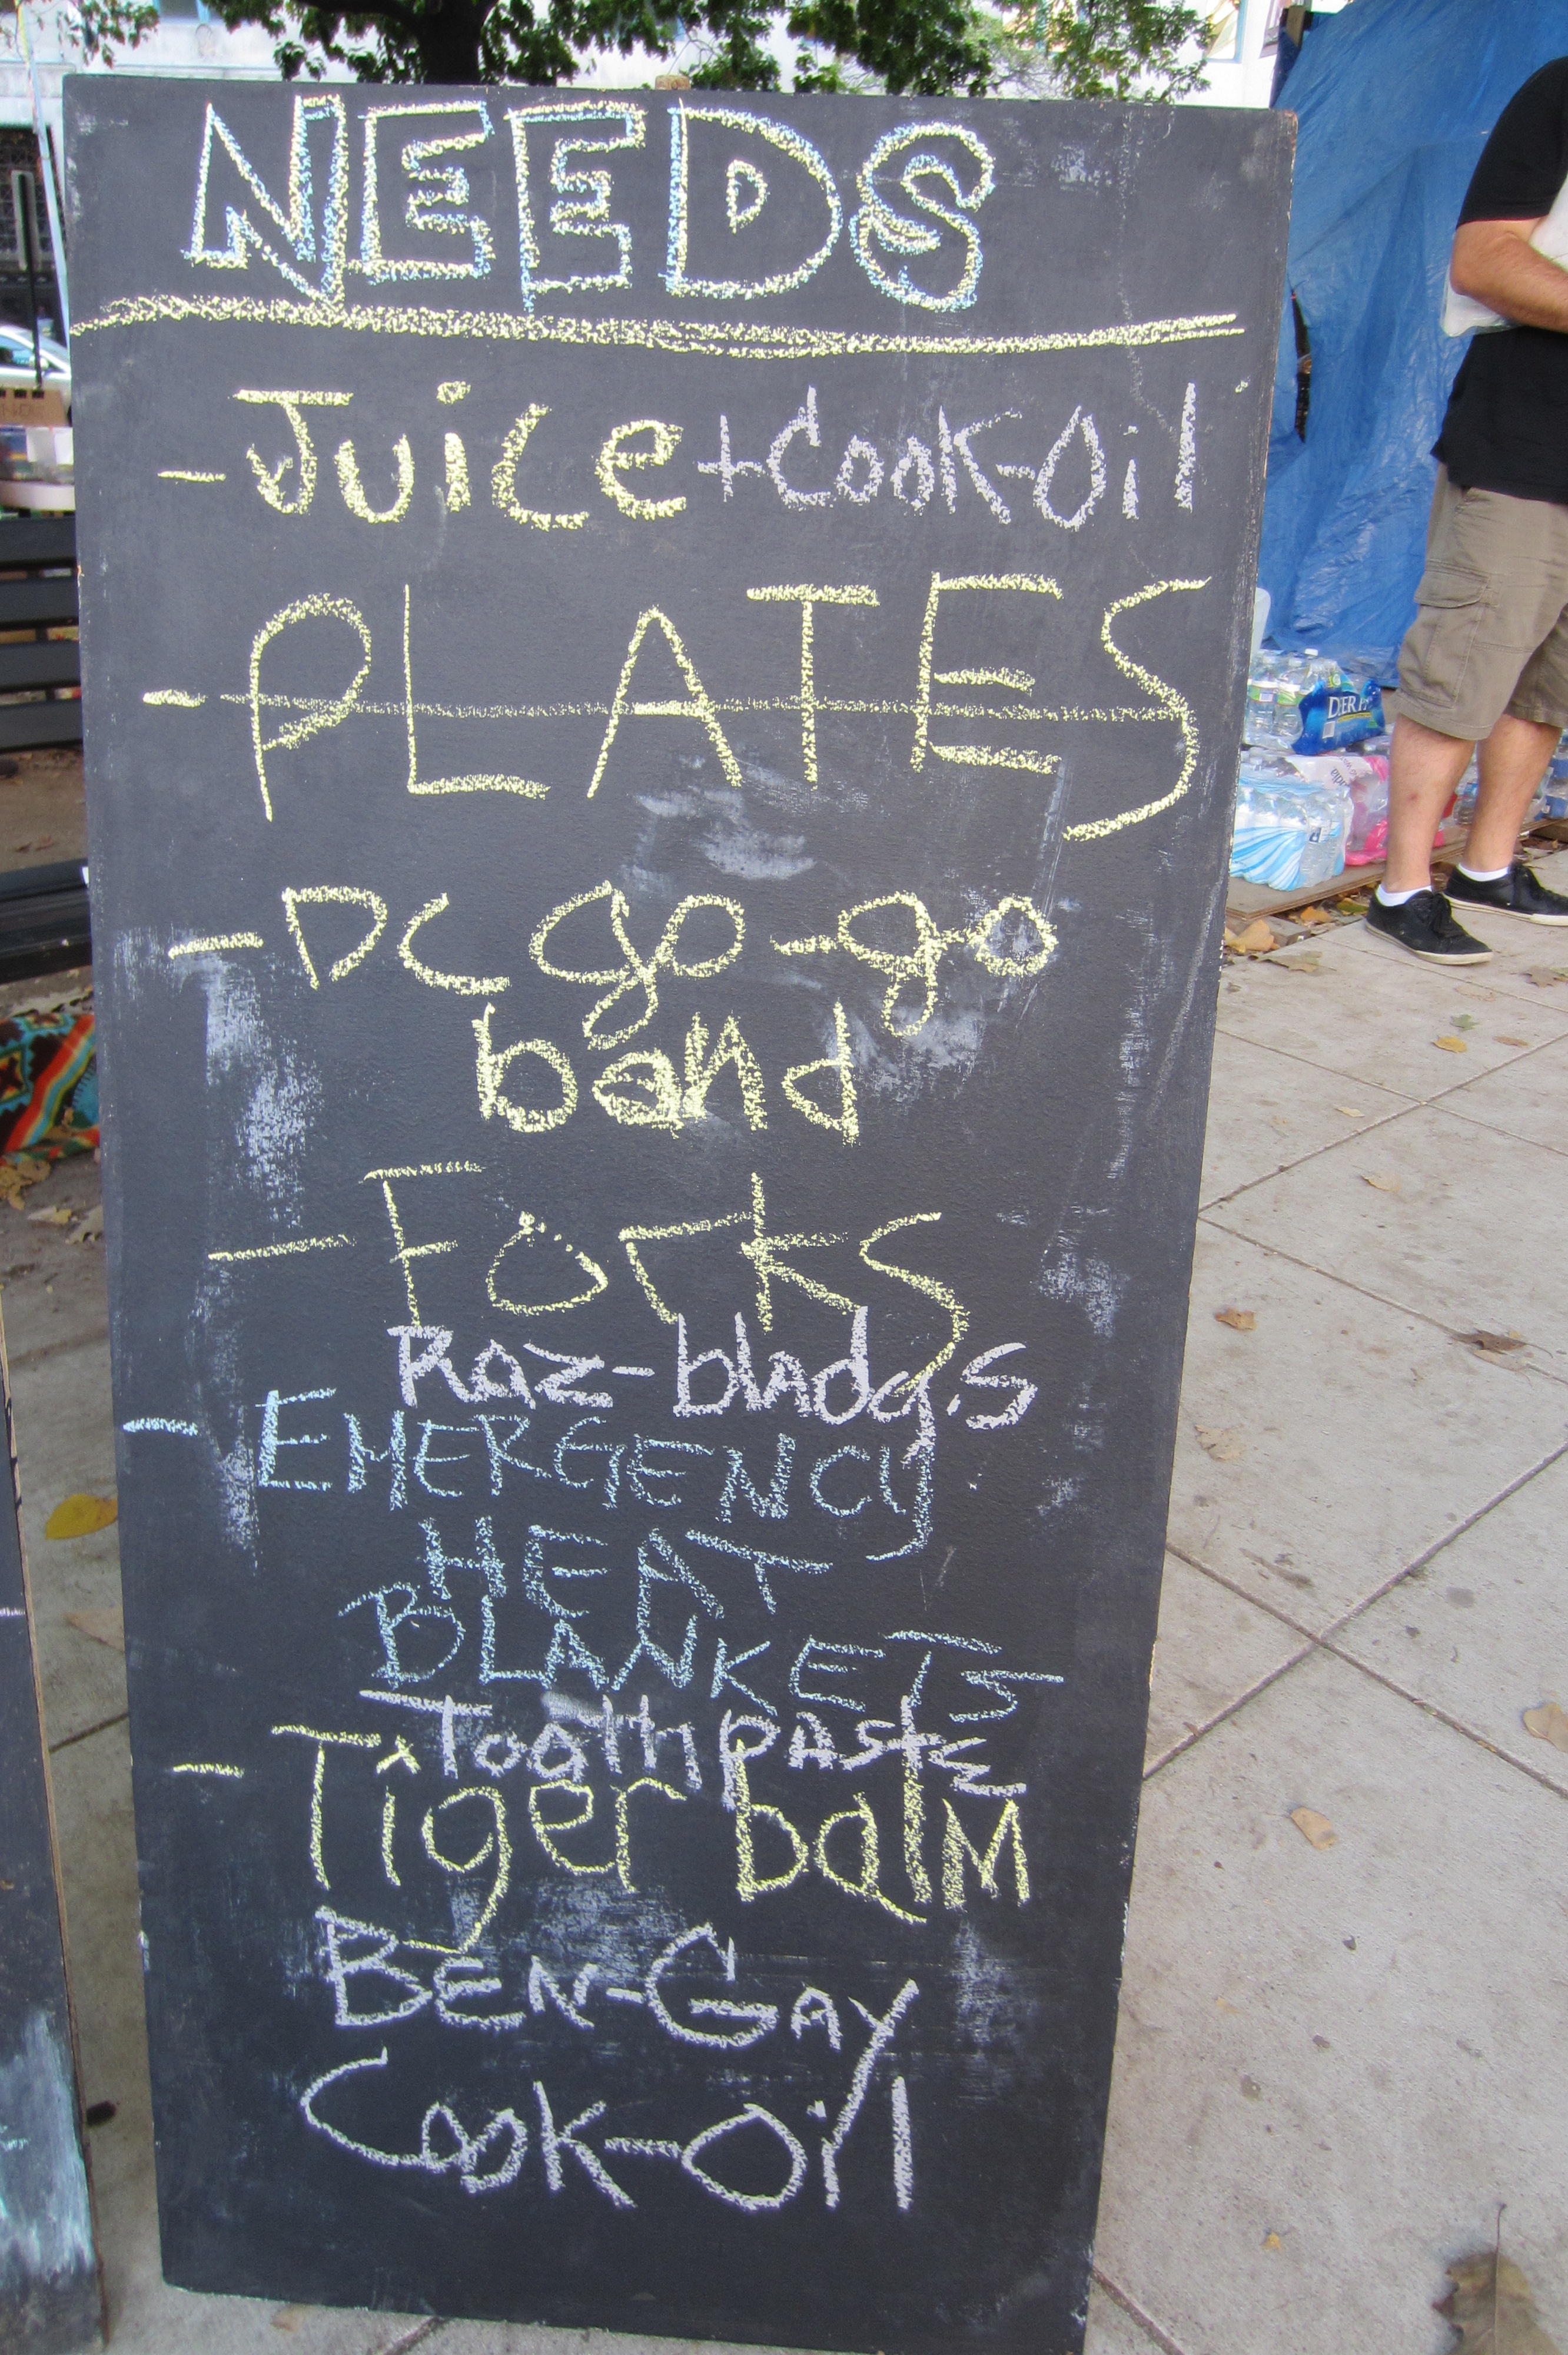 NEEDS
- Juice + Cook-Oil
- PLATES
- DC go-go
band
- Forks
Raz-blades
- EMERGENCY
HEAT
BLANKETS
Toothpaste
- Tiger balm
BEN-GAY
Cook-Oil
DEER P